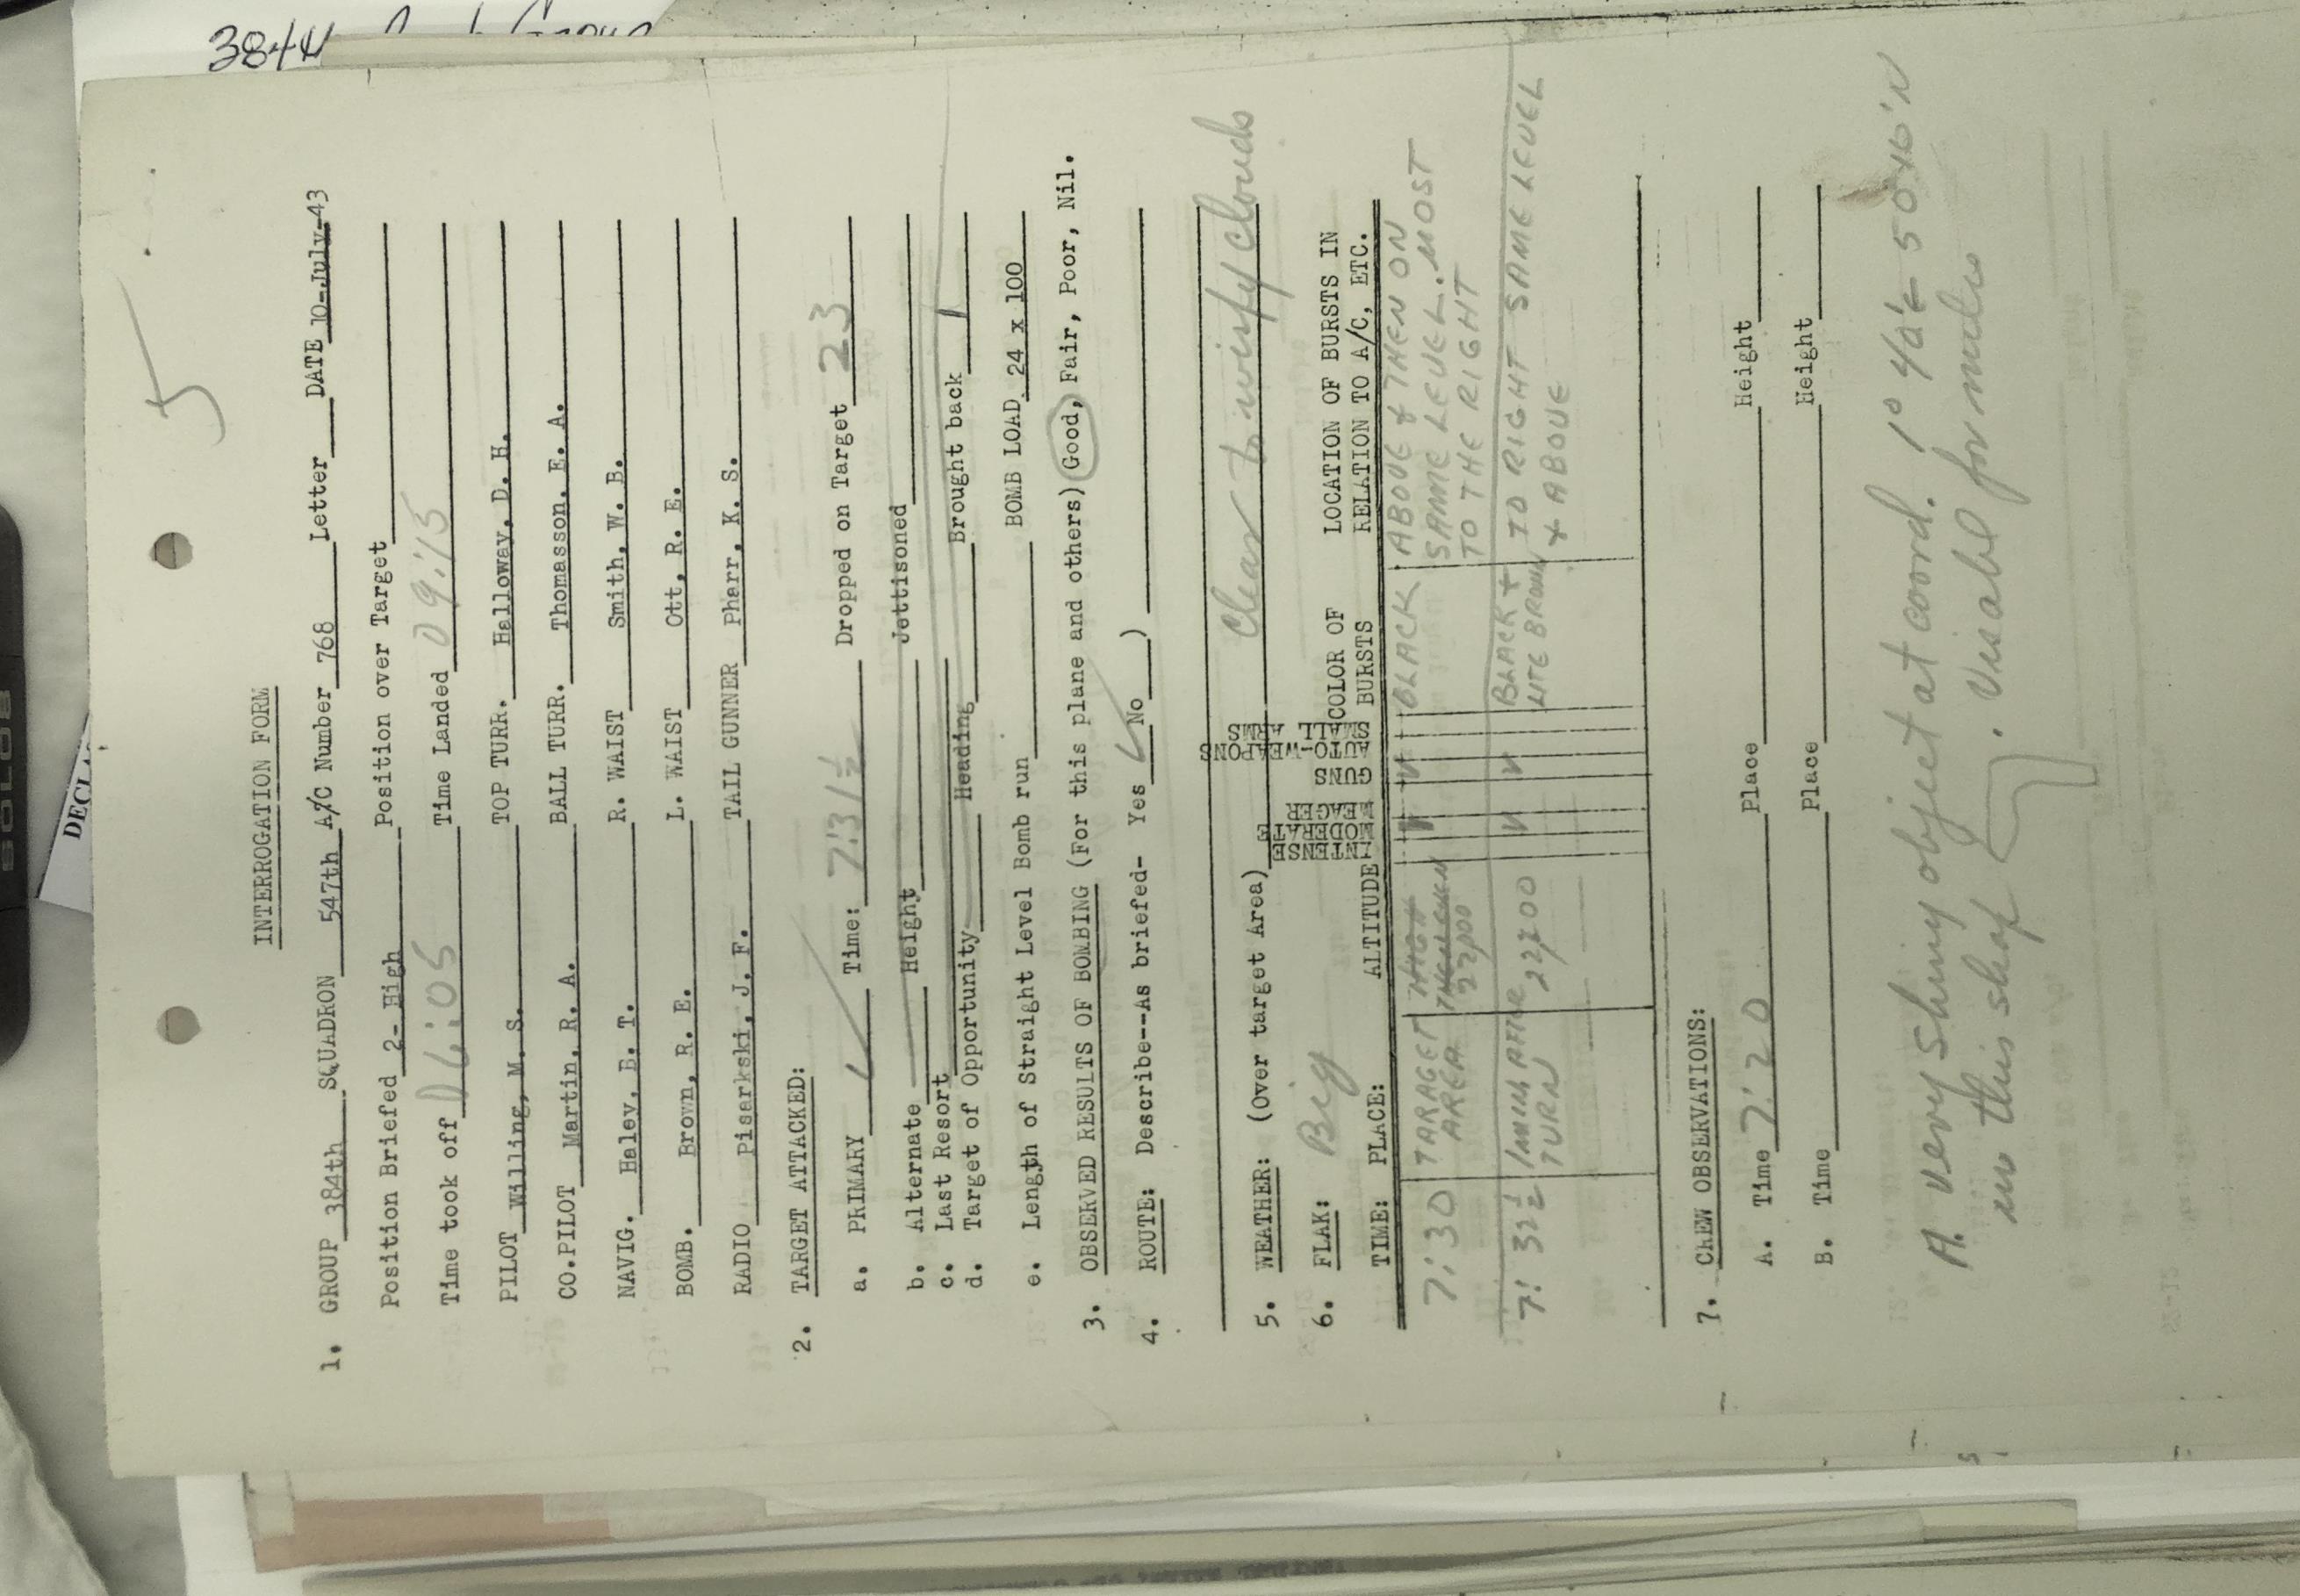 384th
5
INTERROGATION FORM
1. GROUP 384th SQUADRON 547th A/C Number 768 Letter DATE 10-July-43
Position Briefed 2- High Position over Target
Time took off 06:05 Time Landed 09:15
PILOT Willing, M. S. TOP TURR. Halloway, D. H.
CO.PILOT Martin, R. A. BALL TURR. Thomasson, E. A.
NAVIG. Haley, B. T. R. WAIST Smith, W. B.
BOMB. Brown, R. E. L. WAIST Ott, R. E.
RADIO Pisarkski, J. F. TAIL GUNNER Pharr, K. S.
2. TARGET ATTACKED:
a. PRIMARY Time: 7:31½ Dropped on Target 23
b. Alternate Height Jettisoned
c. Last Resort
d. Target of Opportunity Heading Brought back 1
e. Length of Straight Level Bomb run BOMB LOAD 24 x 100
3. OBSERVED RESULTS OF BOMBING (For this plane and others) Good, Fair, Poor, Nil.
4. ROUTE: Describe--As briefed- Yes No )
5. WEATHER: (Over target Area) Clear to wispy clouds
6. FLAK: Big
TIME: PLACE: ALTITUDE INTENSE MODERATE MEAGER GUNS AUTO-WEAPONS SMALL ARMS COLOR OF BURSTS LOCATION OF BURSTS IN RELATION TO A/C, ETC.
7:30 TARAGET AREA 22,000 BLACK ABOVE & THEN ON SAME LEVEL. MOST TO THE RIGHT
7:32½ AFTER TURN 22,200 BLACK + LITE BROWN TO RIGHT SAME LEVEL & ABOVE
7. CREW OBSERVATIONS:
A. Time 7:20 Place Height
B. Time Place Height
A very shiny object at coord. 1° 42'E 50°46'N
in this shap . Visable for miles